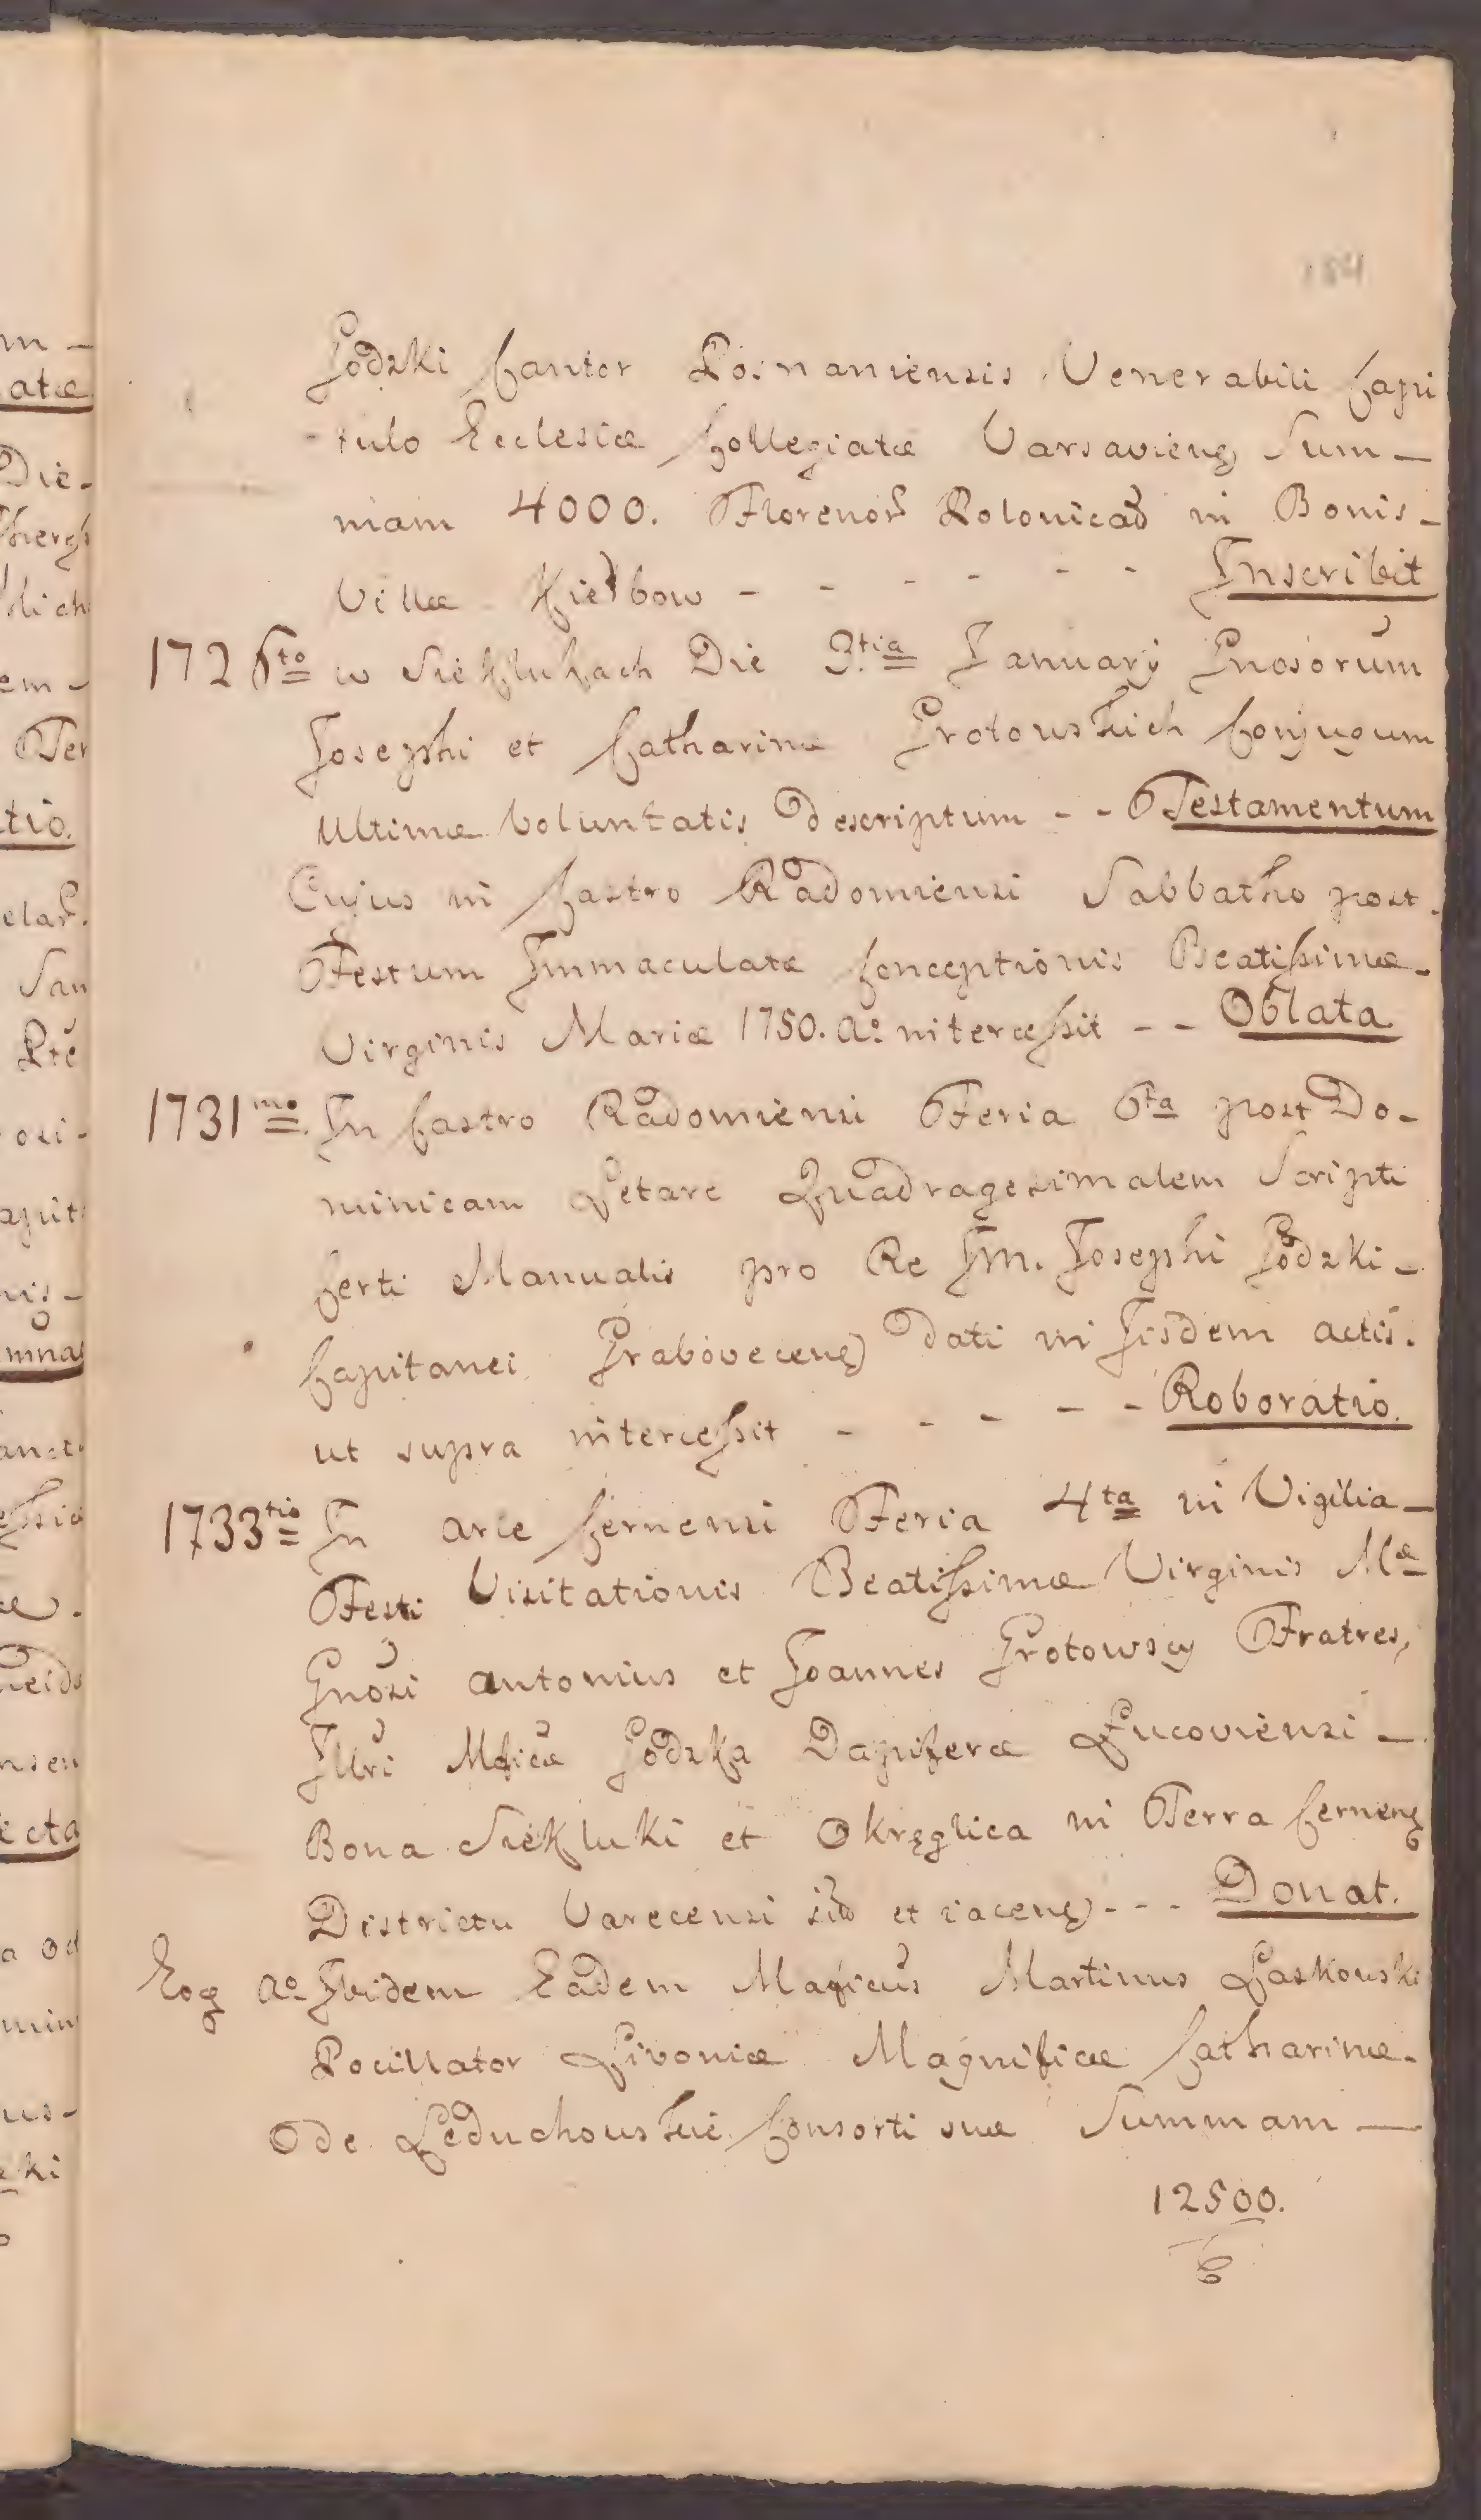 184
Godzki Cantor Posnaniensis Venerabili Capi
tulo Ecclesiæ Collegiatæ Varsavieng Sum-
mam 4000. Florenor Polonicad in Bonis-
Villæ Kiełbow - - - - - - Inscribit
1726to w Siekłukach Die 3.tia January Gnosorum
Josephi et Catharinæ Grotowskich Conjugum
Ultimæ Voluntatis Descriptum - - Testamentum
Cujus in Castro Radomiensi Sabbatho post.
Festum Immaculatæ Conceptionis Beatissimæ-
Virginis Mariæ 1750. Ao intercessit - - Oblata
1731mo. In Castro Radomiensi Feria 6ta post Do-
minicam Letare Quadragesimalem Scripti
Certi Manualis pro Re Im. Josephi Godzki-
Capitanei Graboveceng dati in Iisdem actis.
ut supra intercessit - - - - - Roboratio.
1733tio In arce Cernensi Feria 4ta in Vigilia-
Festi Visitationis Beatissimæ Virginis Mæ
Gnosi Antonius et Joannes Grotowscy Fratres,
Illri Mficæ Godzka Dapiferæ Lucoviensi-
Bona Siekluki et Okręglica in Terra Cerneng
Districtu Varecensi sitd et iaceng - - - Donat.
Eog Ao. Ibidem Eadem Maficus Martinus Laskowski
Pocillator Livoniæ Magnificæ Catharinæ-
Ode Leduchowskie Consorti suæ Summam-
12500.